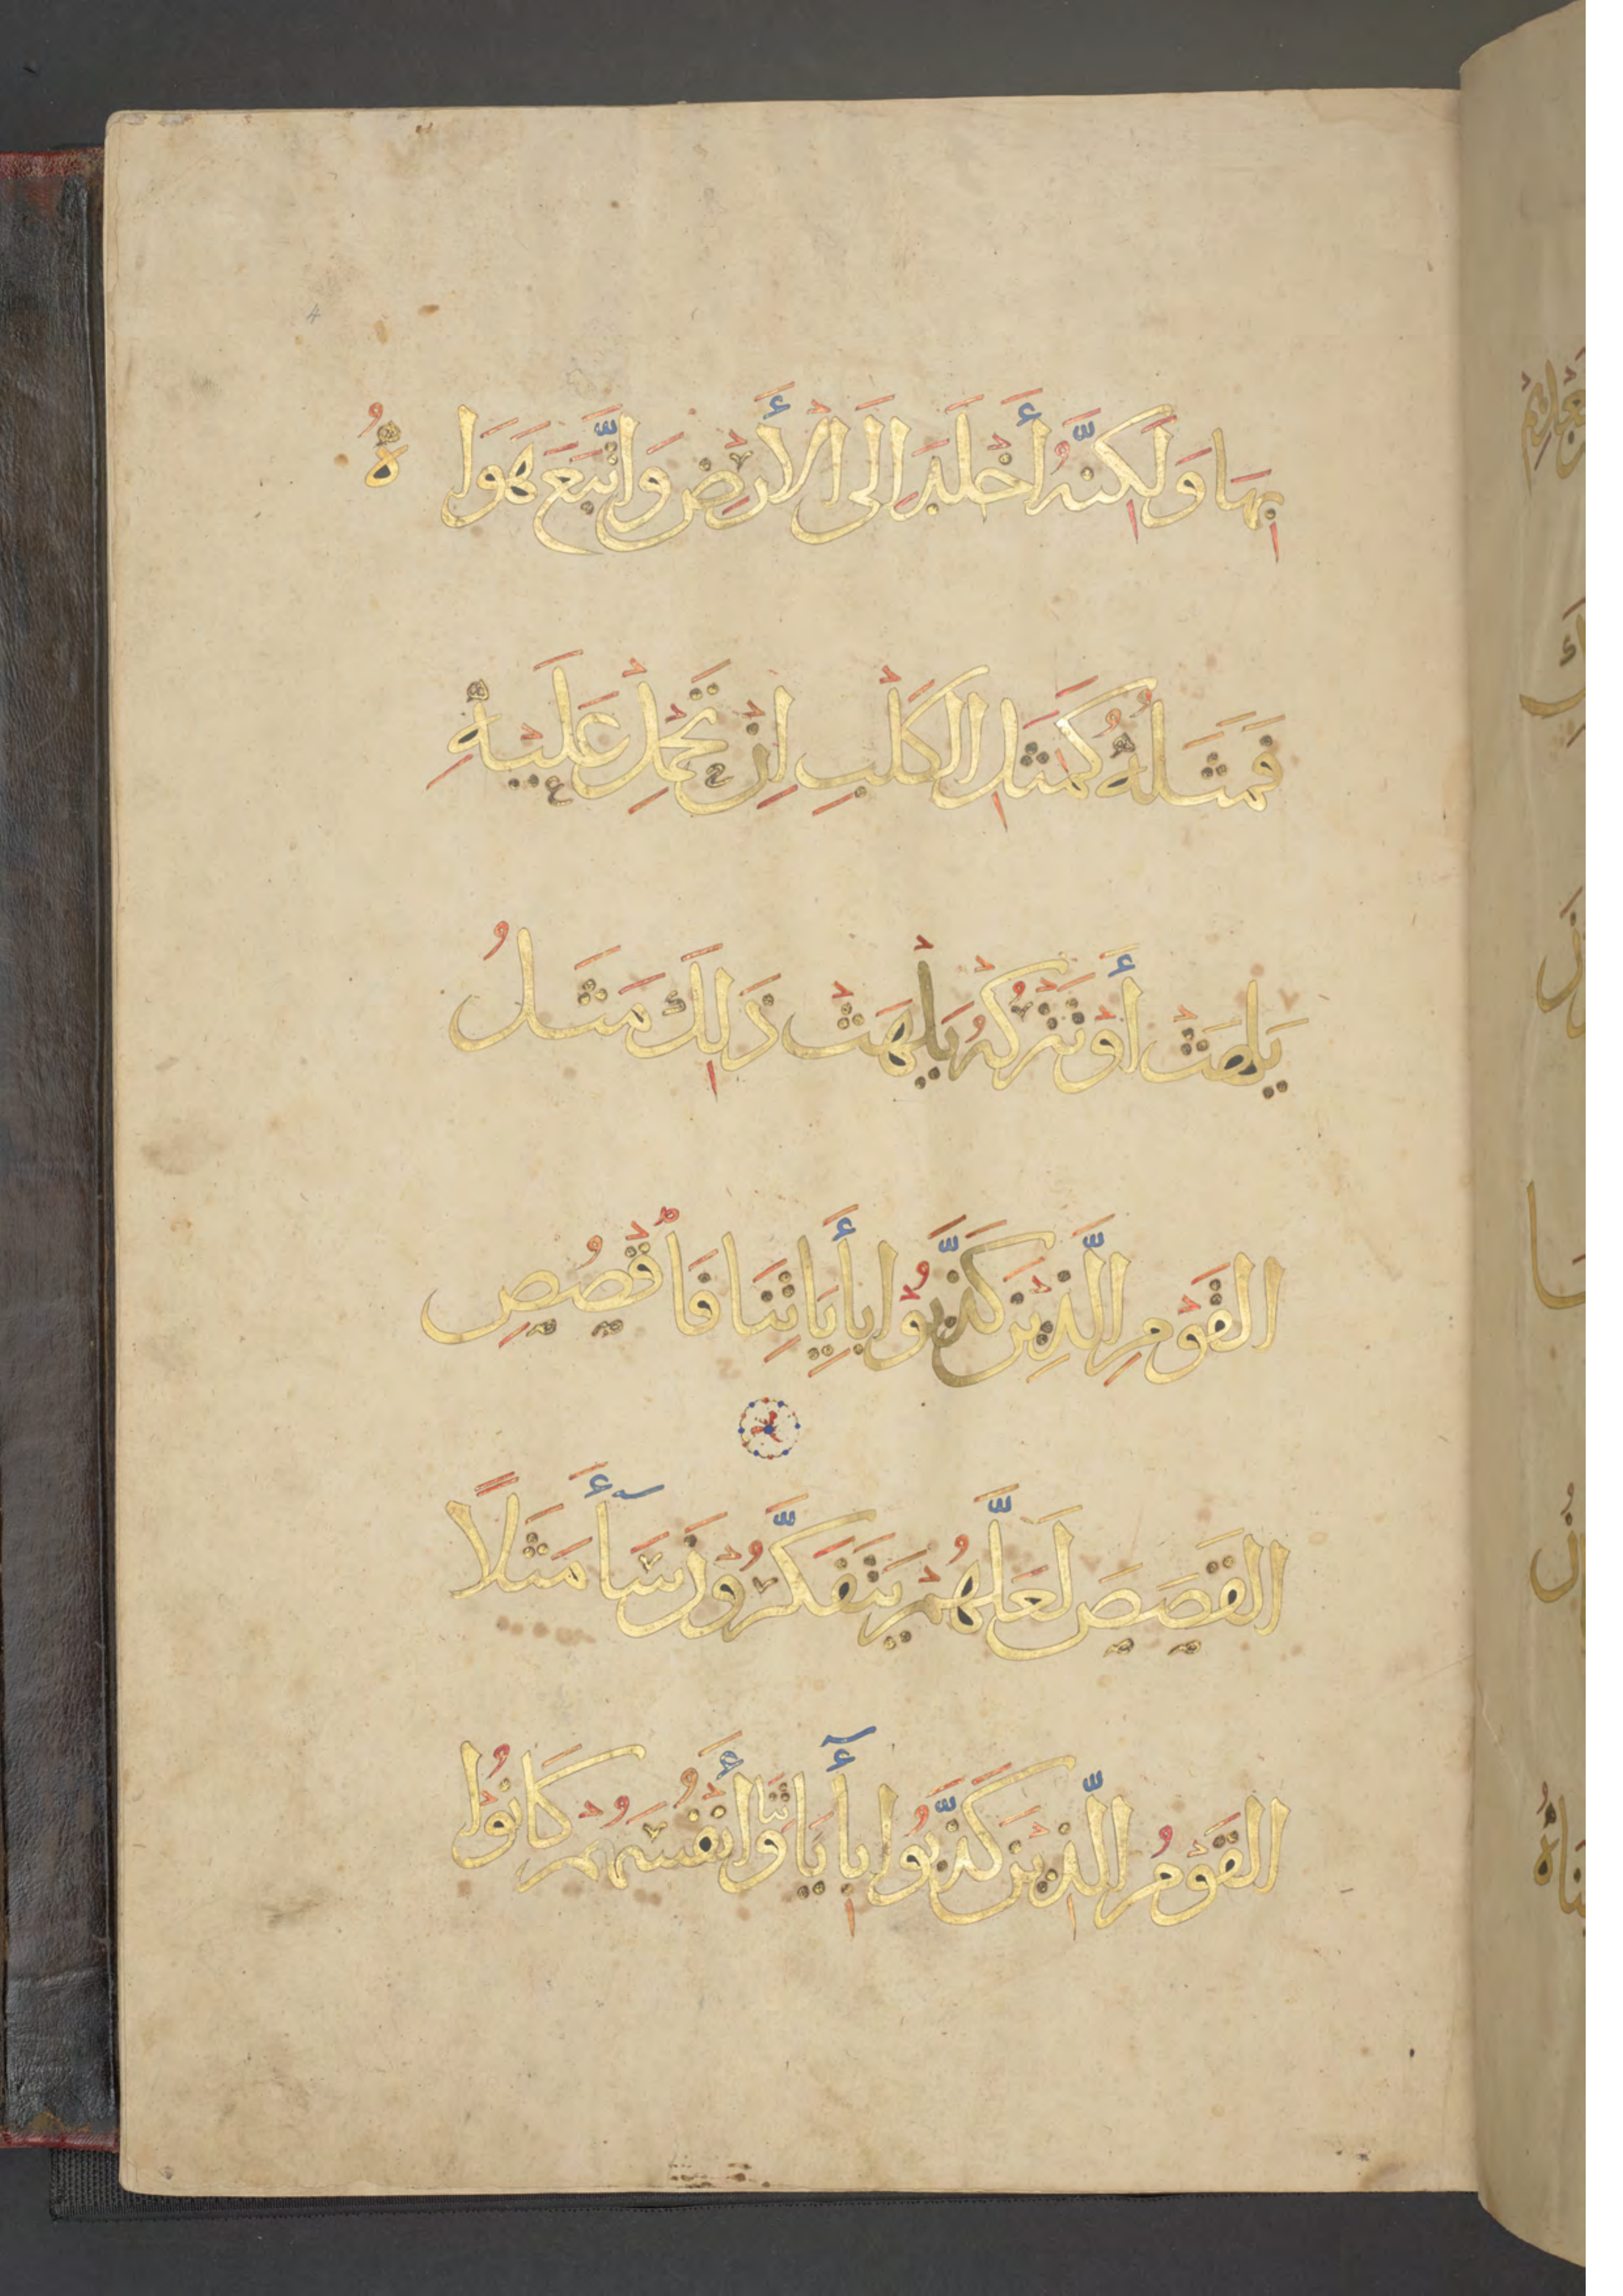 بِهَا وَلَٰكِنَّهُ أَخْلَدَ اِلَى الْأَرْضِ وَاتَّبَعَ هَوَاهُ
فَمَثَلُهُ كَمَثَلِ الْكَلْبِ اِنْ تَحْمِلْ عَلَيْهِ
يَلْهَثْ أَوْ تَتْرُكْهُ يَلْهَثْ ذَٰلِكَ مَثَلُ
الْقَوْمِ الَّذِينَ كَذَّبُوا بِأَيَاتِنَا فَاقْصُصِ
الْقَصَصَ لَعَلَّهُمْ يَتَفَكَّرُونَ سَأَ مَثَلًا
الْقَوْمُ الَّذِينَ كَذَّبُوا بِأَيَاتِنَا وَأَنْفُسَهُمْ كَانُوا